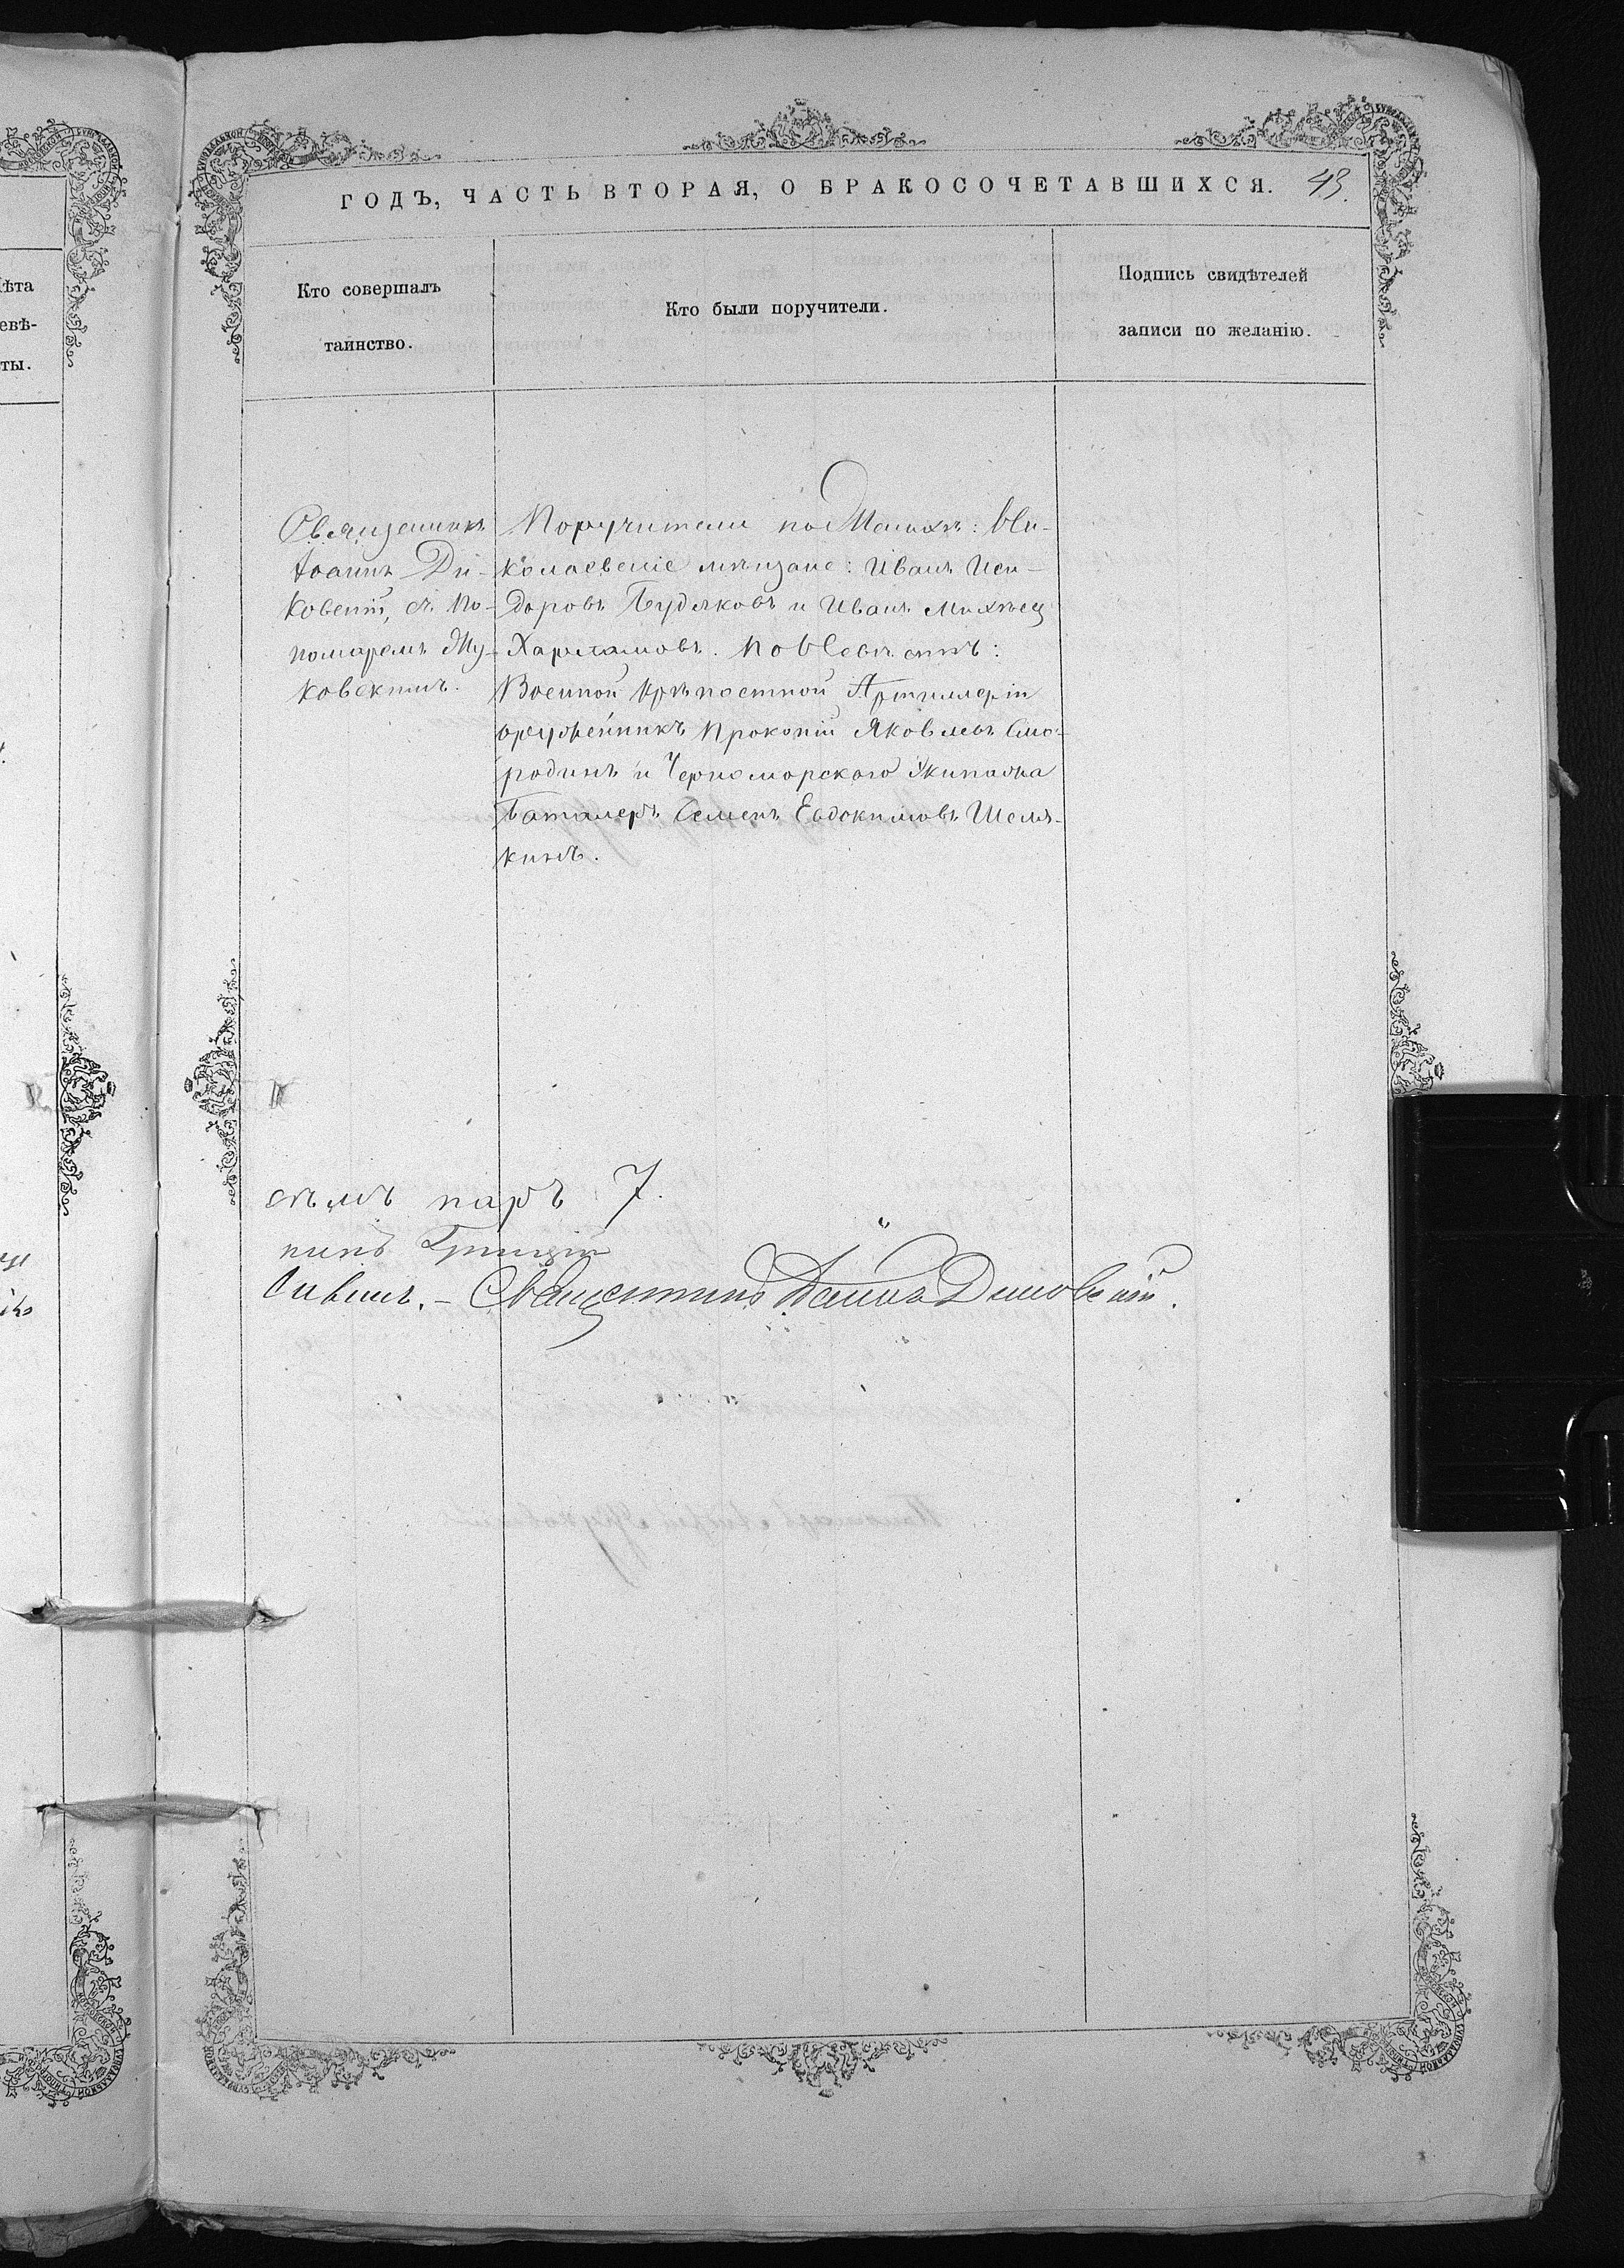 ГОДЪ, ЧАСТЬ ВТОРАЯ, О БРАКОСОЧЕТАВШИХСЯ. 43.
Кто совершалъ
таинство.
Кто были поручители.
Подпись свидѣтелей
записи по желанію.
лѣта
евѣ-
ты.
Священникъ
Іоаннъ Ди-
ковскій, съ По-
номаремъ Жу-
ковскимъ.
Поручители по Женихѣ: Ни-
колаевскіе мѣщане: Иванъ Иси-
доровъ Будяковъ и Иванъ
Харламовъ. По Невѣстѣ:
Военной Крѣпостной Артиллеріи
оружейникъ Прокопій Яковлевъ Смо-
родинъ и Черноморскаго Экипажа
Баталеръ Семенъ Евдокимовъ Шеля-
кинъ.
паръ 7.
Священникъ Іоаннъ Диковскій.